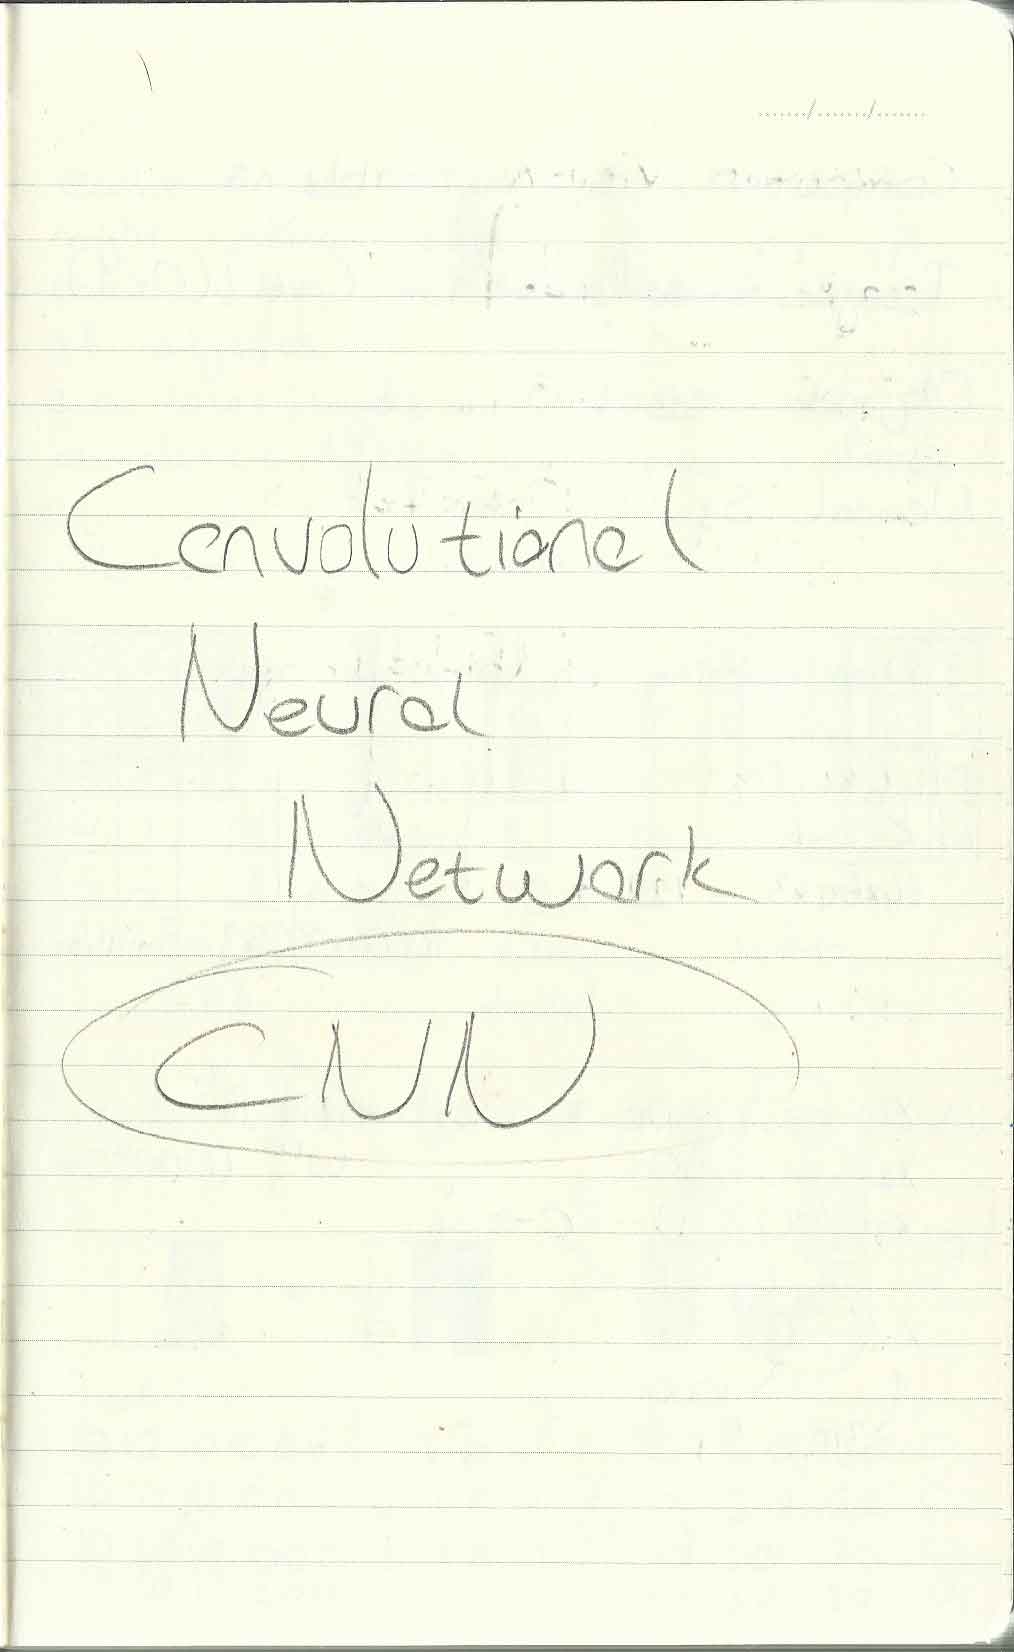 Convolutional
Neural
Network
CNN